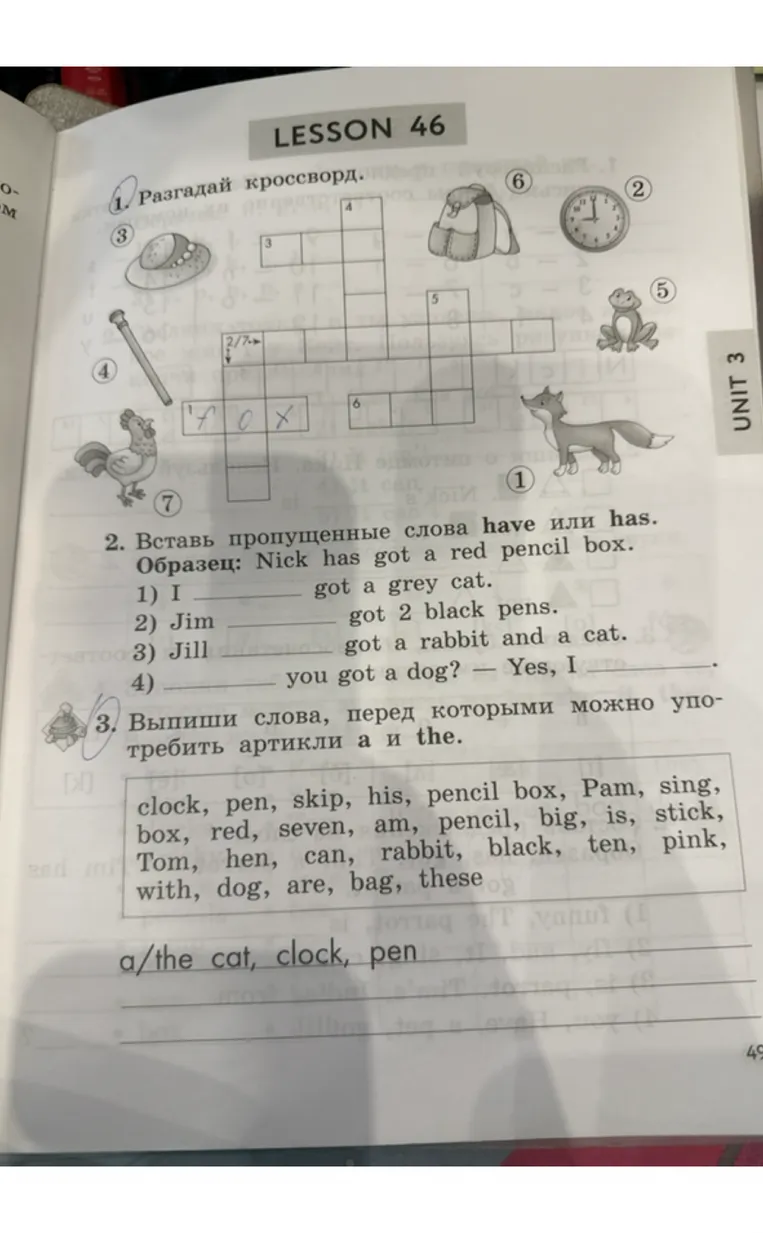 о-
м
LESSON 46
1. Разгадай кроссворд.
6
2
3
4
3
5
5
2/7
4
1 f o x
6
7
1
UNIT 3
2. Вставь пропущенные слова have или has.
Образец: Nick has got a red pencil box.
1) I ________ got a grey cat.
2) Jim ________ got 2 black pens.
3) Jill ________ got a rabbit and a cat.
4) ________ you got a dog? — Yes, I ________.
3. Выпиши слова, перед которыми можно упо-
требить артикли a и the.
clock, pen, skip, his, pencil box, Pam, sing,
box, red, seven, am, pencil, big, is, stick,
Tom, hen, can, rabbit, black, ten, pink,
with, dog, are, bag, these
a/the cat, clock, pen
49